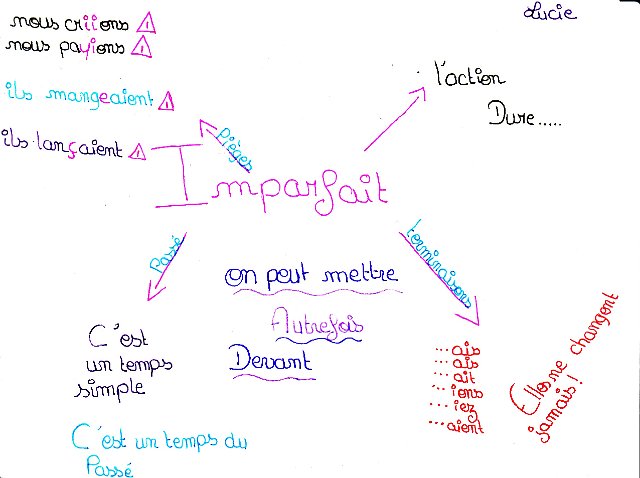 Lucie
nous criions
nous payions
ils mangeaient
ils lançaient
Pièges
l'action
Dure.....
Imparfait
Passé
terminaisons
on peut mettre
Autrefois
Devant
C'est
un temps
simple
C'est un temps du
Passé
...ais
...ais
...ait
...ions
...iez
...aient
Elles ne changent
jamais!